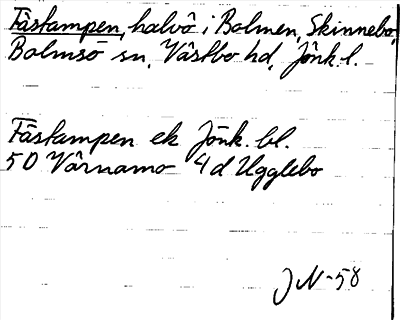 Fästampen, halvö i Bolmen, Skinnebo,
Bolmsö sn, Västbo hd, Jönk. l.
Fästampen ek Jönk. bl.
5D Värnamo 4d Ugglebo
JN-58